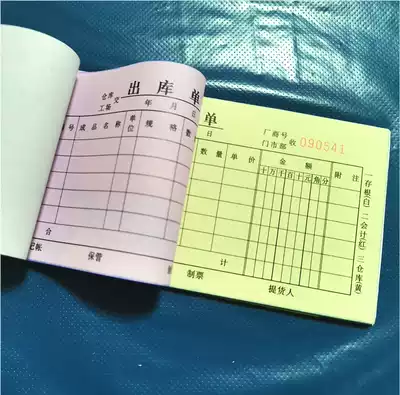 出库单
仓库交
工场
年 月 日
号 成品名称 单位 规格 数
合
记帐 保管
单
日
厂商号
门市部 收 090541
数量 单价 金额 附注
十万千百十元角分
计
制票 提货人
一存根(白)二会计(红)三仓库(黄)